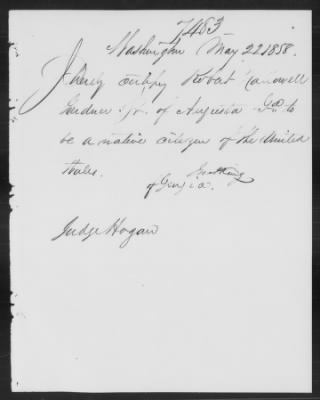 7483
Washington May 22 1858.
I hereby certify Robert
Gardner Jr. of Augusta Ga. to
be a native citizen of the United
States.
of Georgia.
Judge Hogan